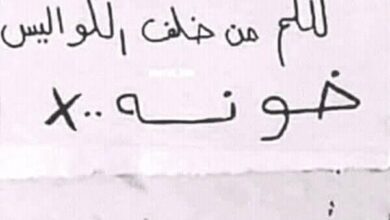 للكم من خلف اللواليس
خونه..X